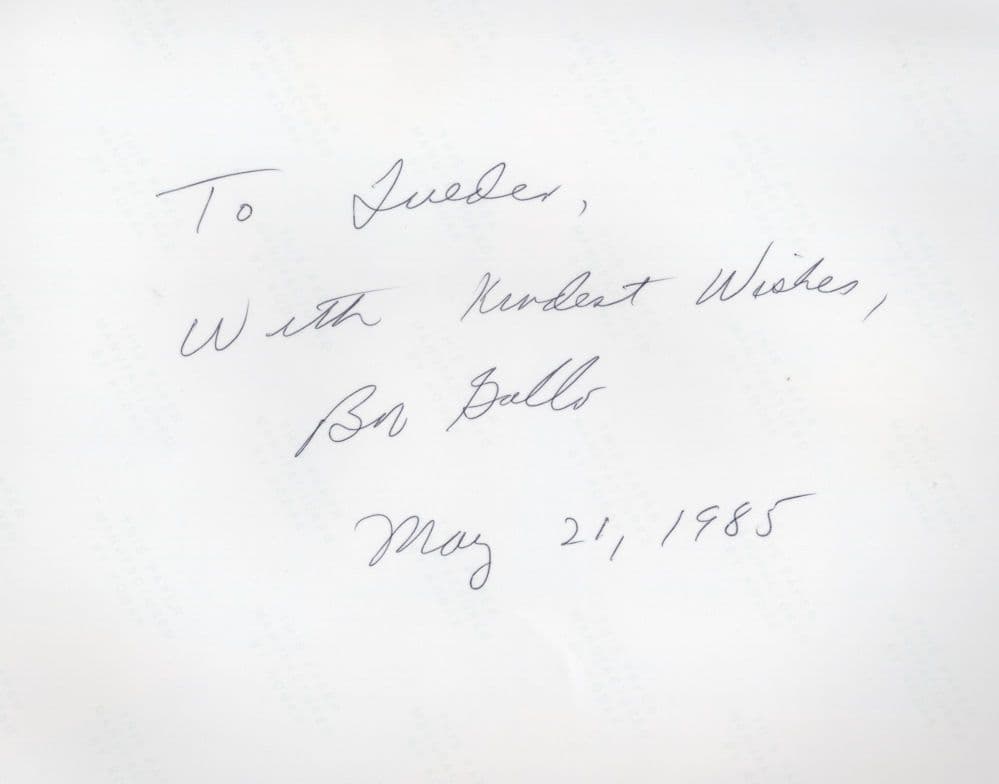 To Lueder,
With Kindest Wishes,
Bob Gallo
May 21, 1985